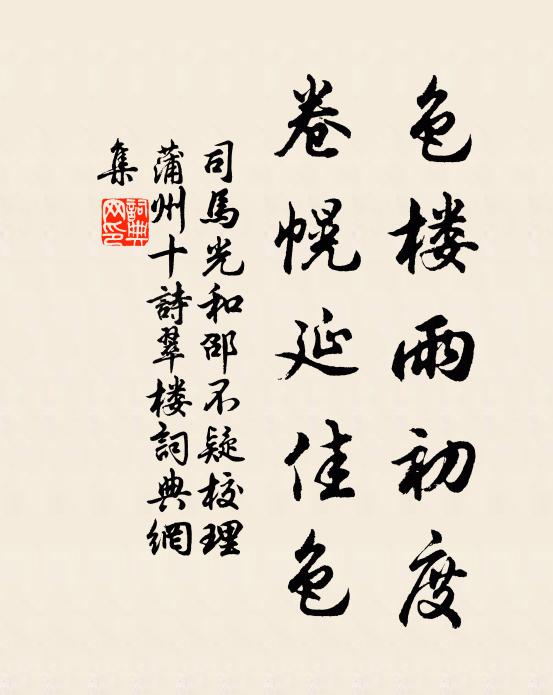 色楼雨初度
卷幌延佳色
司馬光和邵不疑校理
蒲州十詩翠楼詞典網
集
詞典
网印